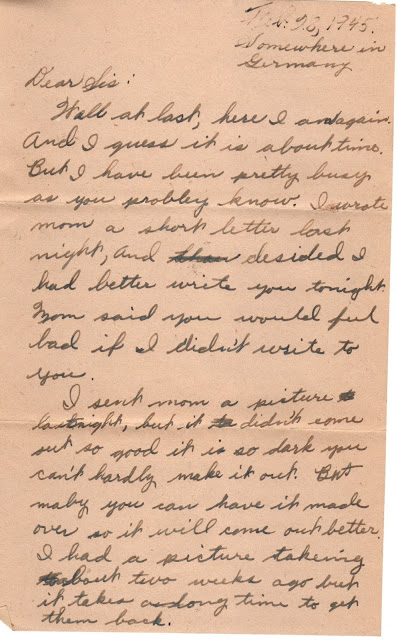 Feb. 28, 1945.
Somewhere in
Germany
Dear Sis:
Well at last, here I am again.
And I guess it is about time.
But I have been pretty busy
as you probley know. I wrote
mom a short letter last
night, and decided I
had better write you tonight.
Mom said you would feel
bad if I didn't write to
you.
I sent mom a picture
last night, but it didn't come
out so good it is so dark you
can't hardly make it out. But
maby you can have it made
over so it will come out better.
I had a picture takeing
about two weeks ago but
it takes a long time to get
them back.